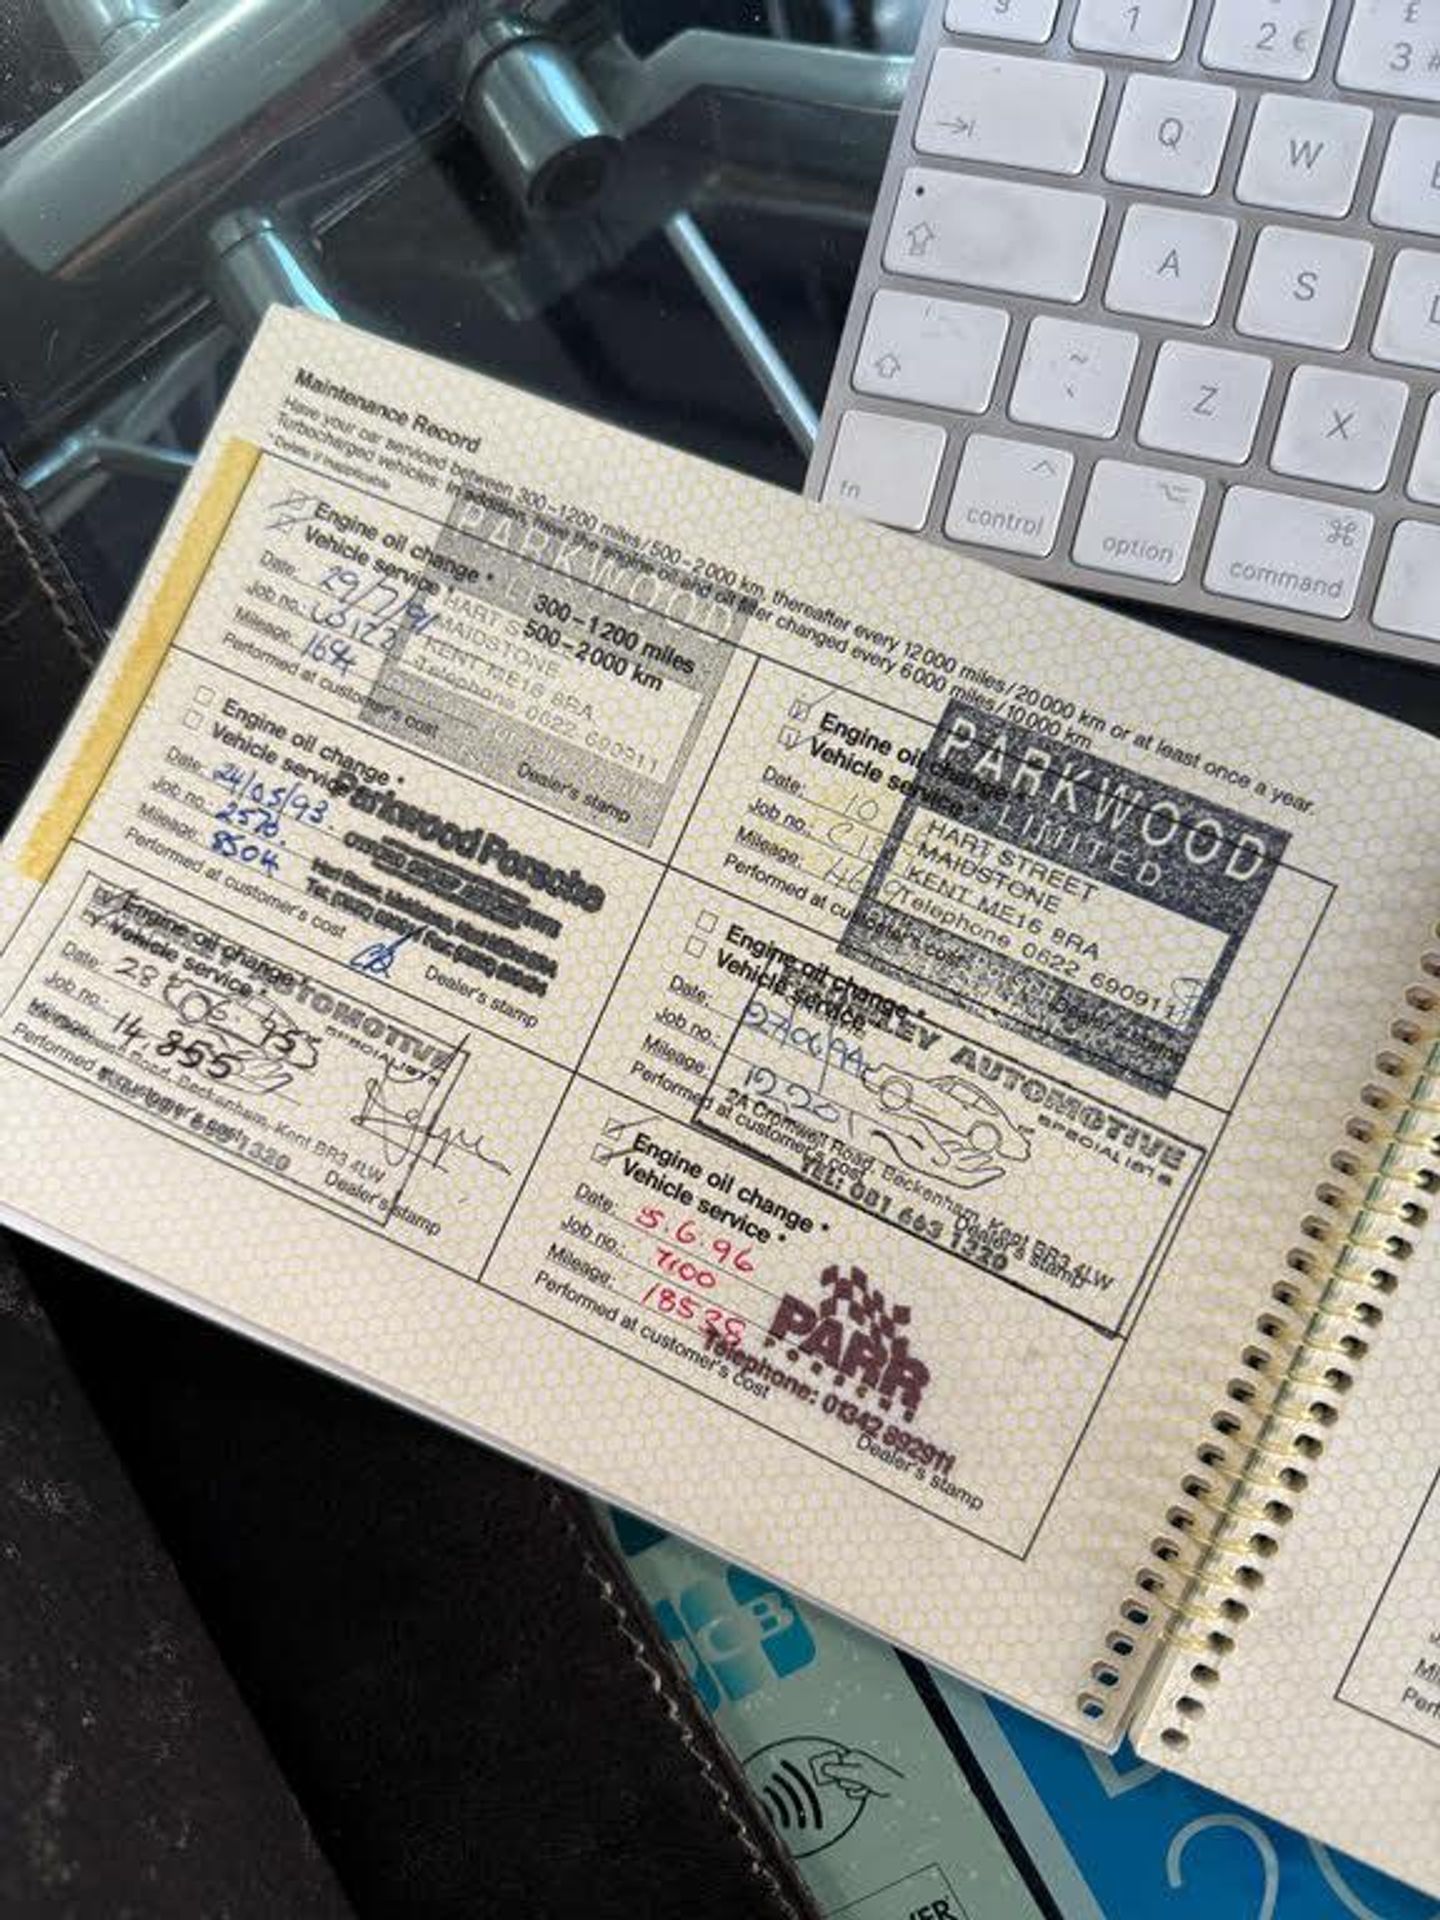 1
2 €
£
3 #
Q
W
A
S
~
Z
X
fn
control
option
⌘
command
Maintenance Record
Have your car serviced between 300–1200 miles/500–2000 km, thereafter every 12000 miles/20000 km or at least once a year.
Turbocharged vehicles: In addition, have the engine oil and oil filter changed every 6000 miles/10000 km
*Delete if applicable
Engine oil change *
Vehicle service *
300–1200 miles
500–2000 km
Date: 29/7/91
Job no.:
Mileage: 1694
Performed at customer's cost
PARKWOOD
HART
MAIDSTONE
KENT ME16 8RA
Telephone 0622 690911
Dealer's stamp
Engine oil change *
Vehicle service *
Date: 10
Job no.:
Mileage:
Performed at customer's cost
PARKWOOD
LIMITED
HART STREET
MAIDSTONE
KENT ME16 8RA
Telephone 0622 690911
Engine oil change *
Vehicle service
Date: 24/05/93.
Job no.: 2578.
Mileage: 8504
Performed at customer's cost
Parkwood Porsche
Dealer's stamp
Engine oil change *
Vehicle service
Date: 27/06/94
Job no.:
Mileage: 12201
Performed at customer's cost
LEY AUTOMOTIVE
SPECIALISTS
2A Cromwell Road, Beckenham, Kent BR3 4LW
TEL: 081 663 1320
Dealer's stamp
Engine oil change
Vehicle service *
Date: 28 06 95
Job no.:
Mileage: 14.855
Performed at customer's cost
TOMOTIVE
SPECIALISTS
Road, Beckenham, Kent BR3 4LW
1320
Dealer's stamp
Engine oil change *
Vehicle service *
Date: 5.6.96
Job no.: 7100
Mileage: 18528
Performed at customer's cost
PARR
Telephone: 01342 892911
Dealer's stamp
Mil
Perf
JCB